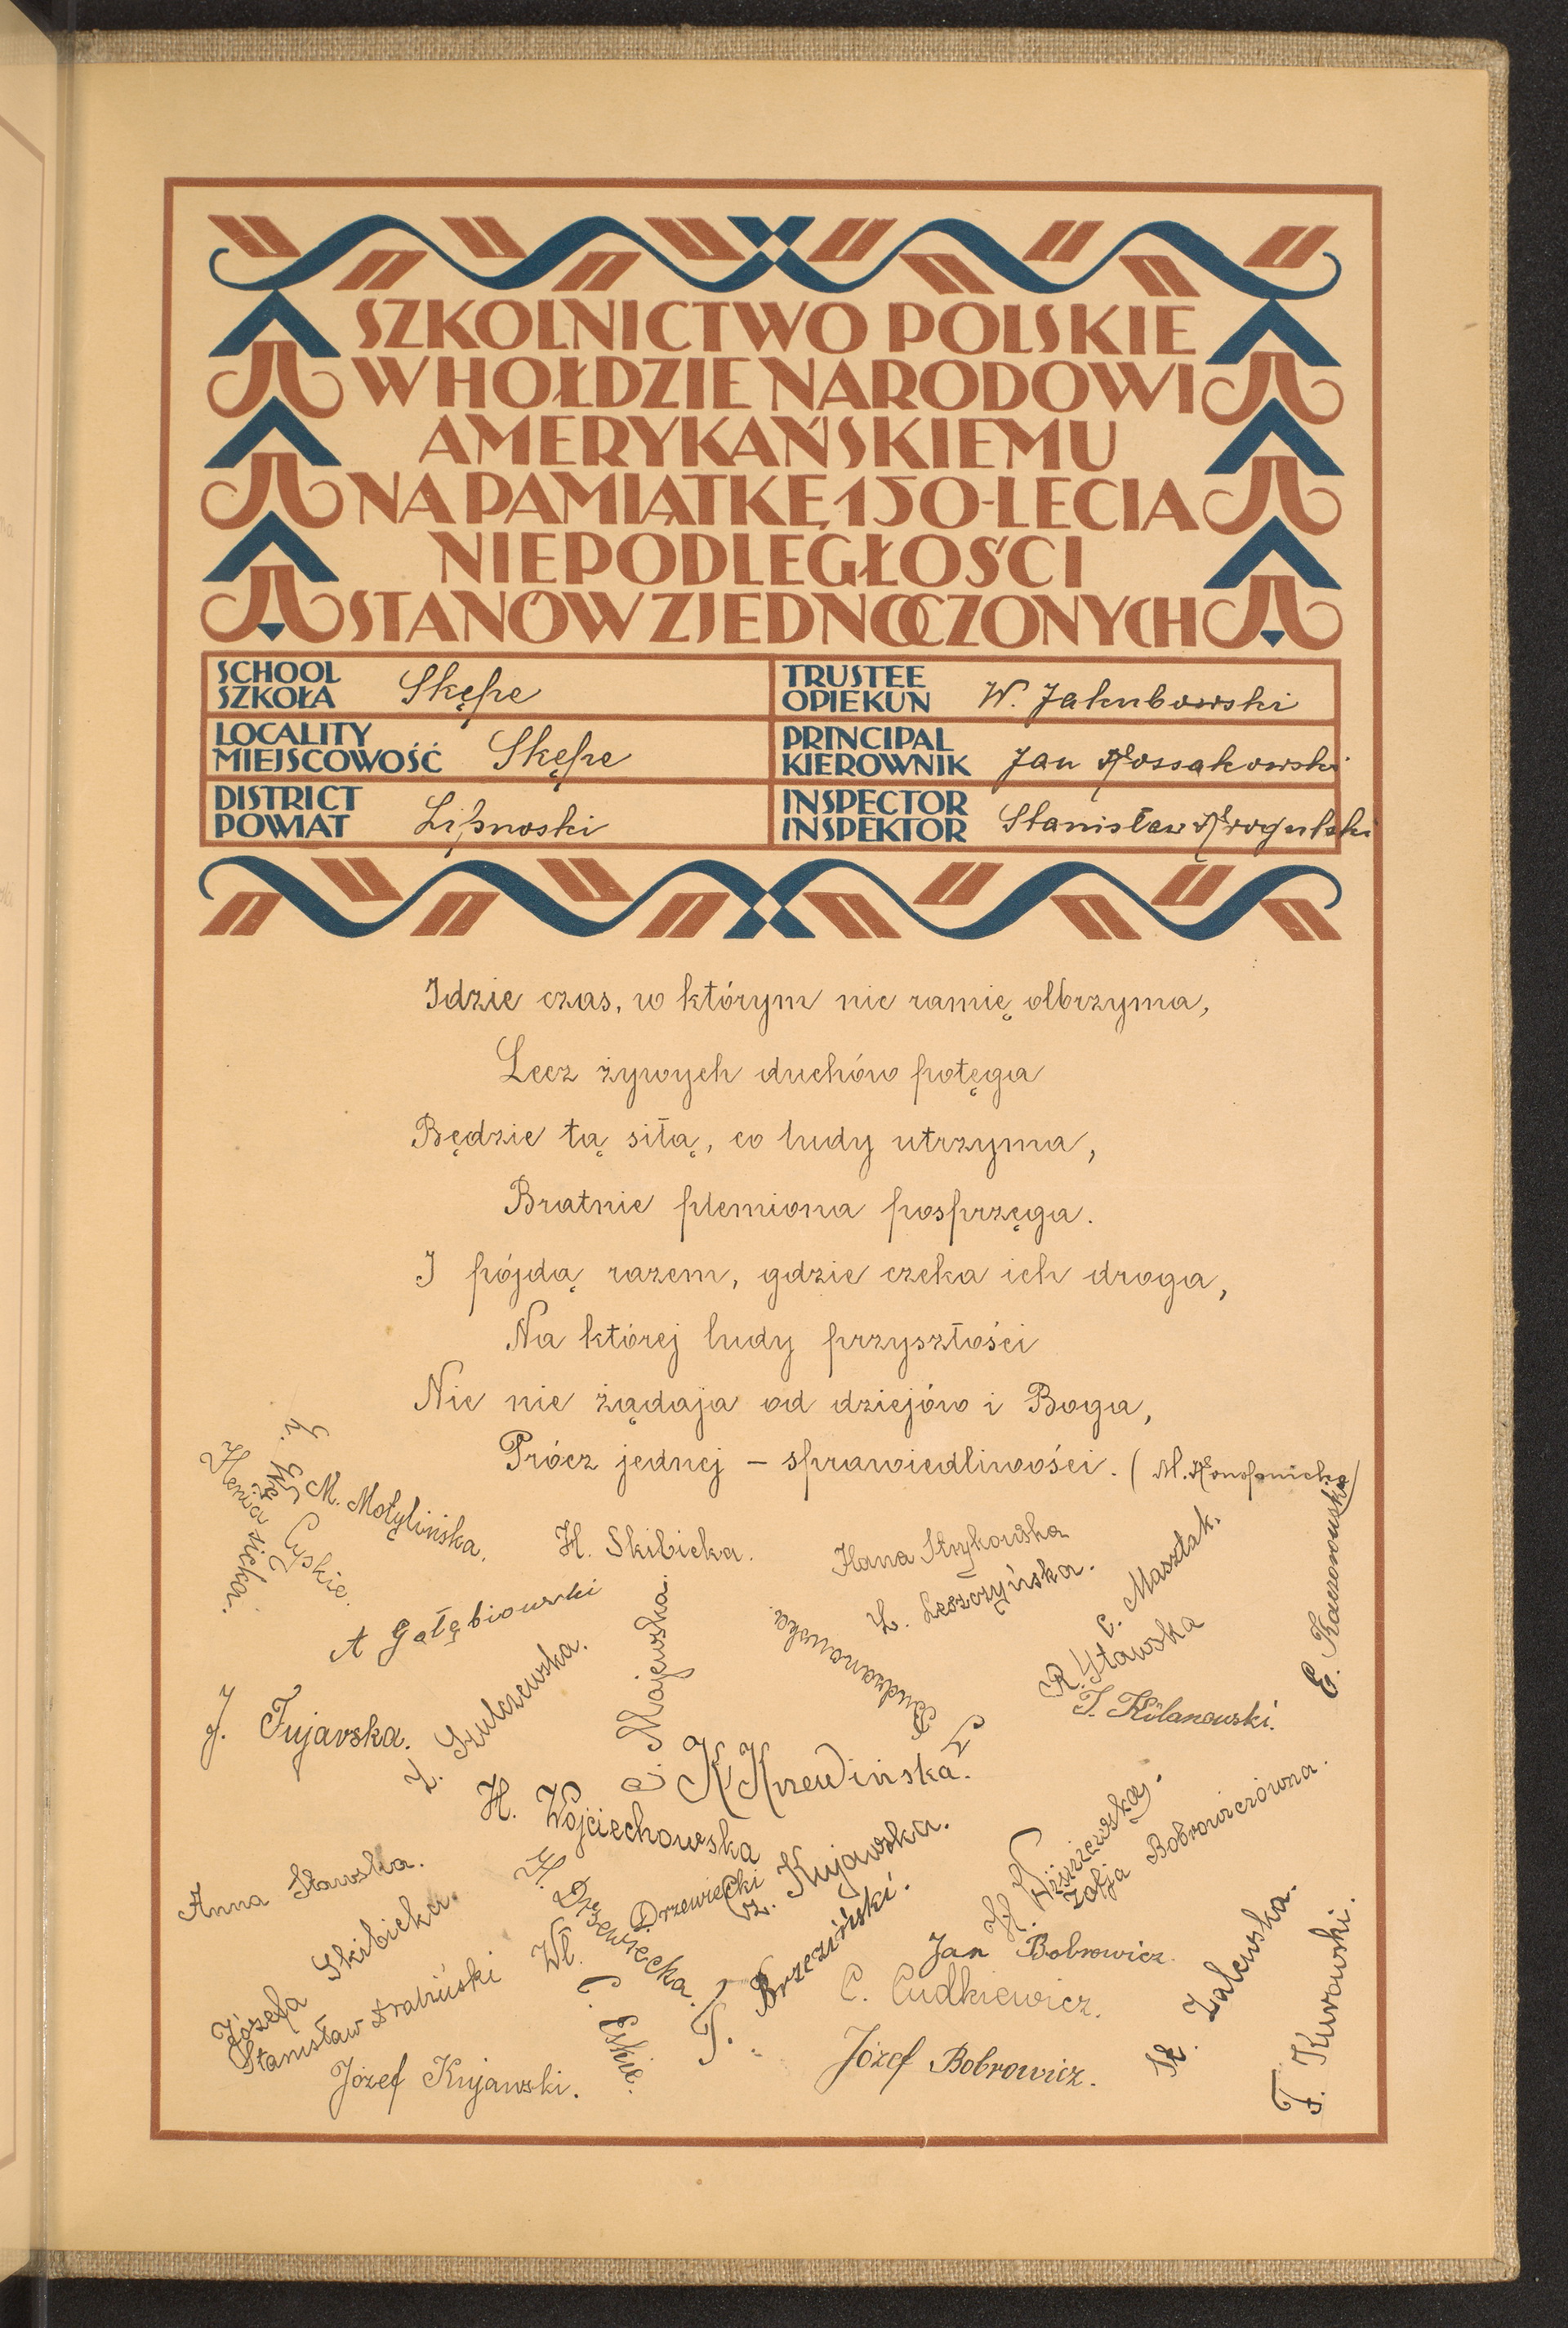 SZKOLNICTWO POLSKIE
W HOŁDZIE NARODOWI
AMERYKAŃSKIEMU
NA PAMIĄTKĘ 150-LECIA
NIEPODLEGŁOŚCI
STANÓW ZJEDNOCZONYCH
SCHOOL
SZKOŁA Skępe
TRUSTEE
OPIEKUN W. Jakubowski
LOCALITY
MIEJSCOWOŚĆ Skępe
PRINCIPAL
KIEROWNIK Jan Kossakowski
DISTRICT
POWIAT Lipnoski
INSPECTOR
INSPEKTOR Stanisław Krogulski
Idzie czas, w którym nie ramię olbrzyma,
Lecz żywych duchów potęga
Będzie tą siłą, co ludy utrzyma,
Bratnie plemiona posprzęga.
I pójdą razem, gdzie czeka ich droga,
Na której ludy przyszłości
Nic nie żądaja od dziejów i Boga,
Prócz jednej – sprawiedliwości. (M. Konopnicka)
M. Motylińska.
H. Skibicka.
Hana Strykowska
Z. Leszczyńska.
C. Masztak.
E. Kaczorowska
A Gałębiowski
R. Stawska
T. Kilanowski.
J. Fujavska.
Z. Szulczewska.
C. Majewska.
K Krzewińska.
H. Wojciechowska
Z. Kujawska.
H. Wiszniewska.
Zofja Bobrowiczówna.
Anna Stawska.
Józefa Skibicka.
H. Drzewiecka.
Wł. Drzewiecki
T. Brzeziński.
Jan Bobrowicz.
C. Cudkiewicz.
St. Zalewska.
F. Kurowski.
Stanisław Drabiński
C. Eskie.
Józef Kujawski.
Józef Bobrowicz.